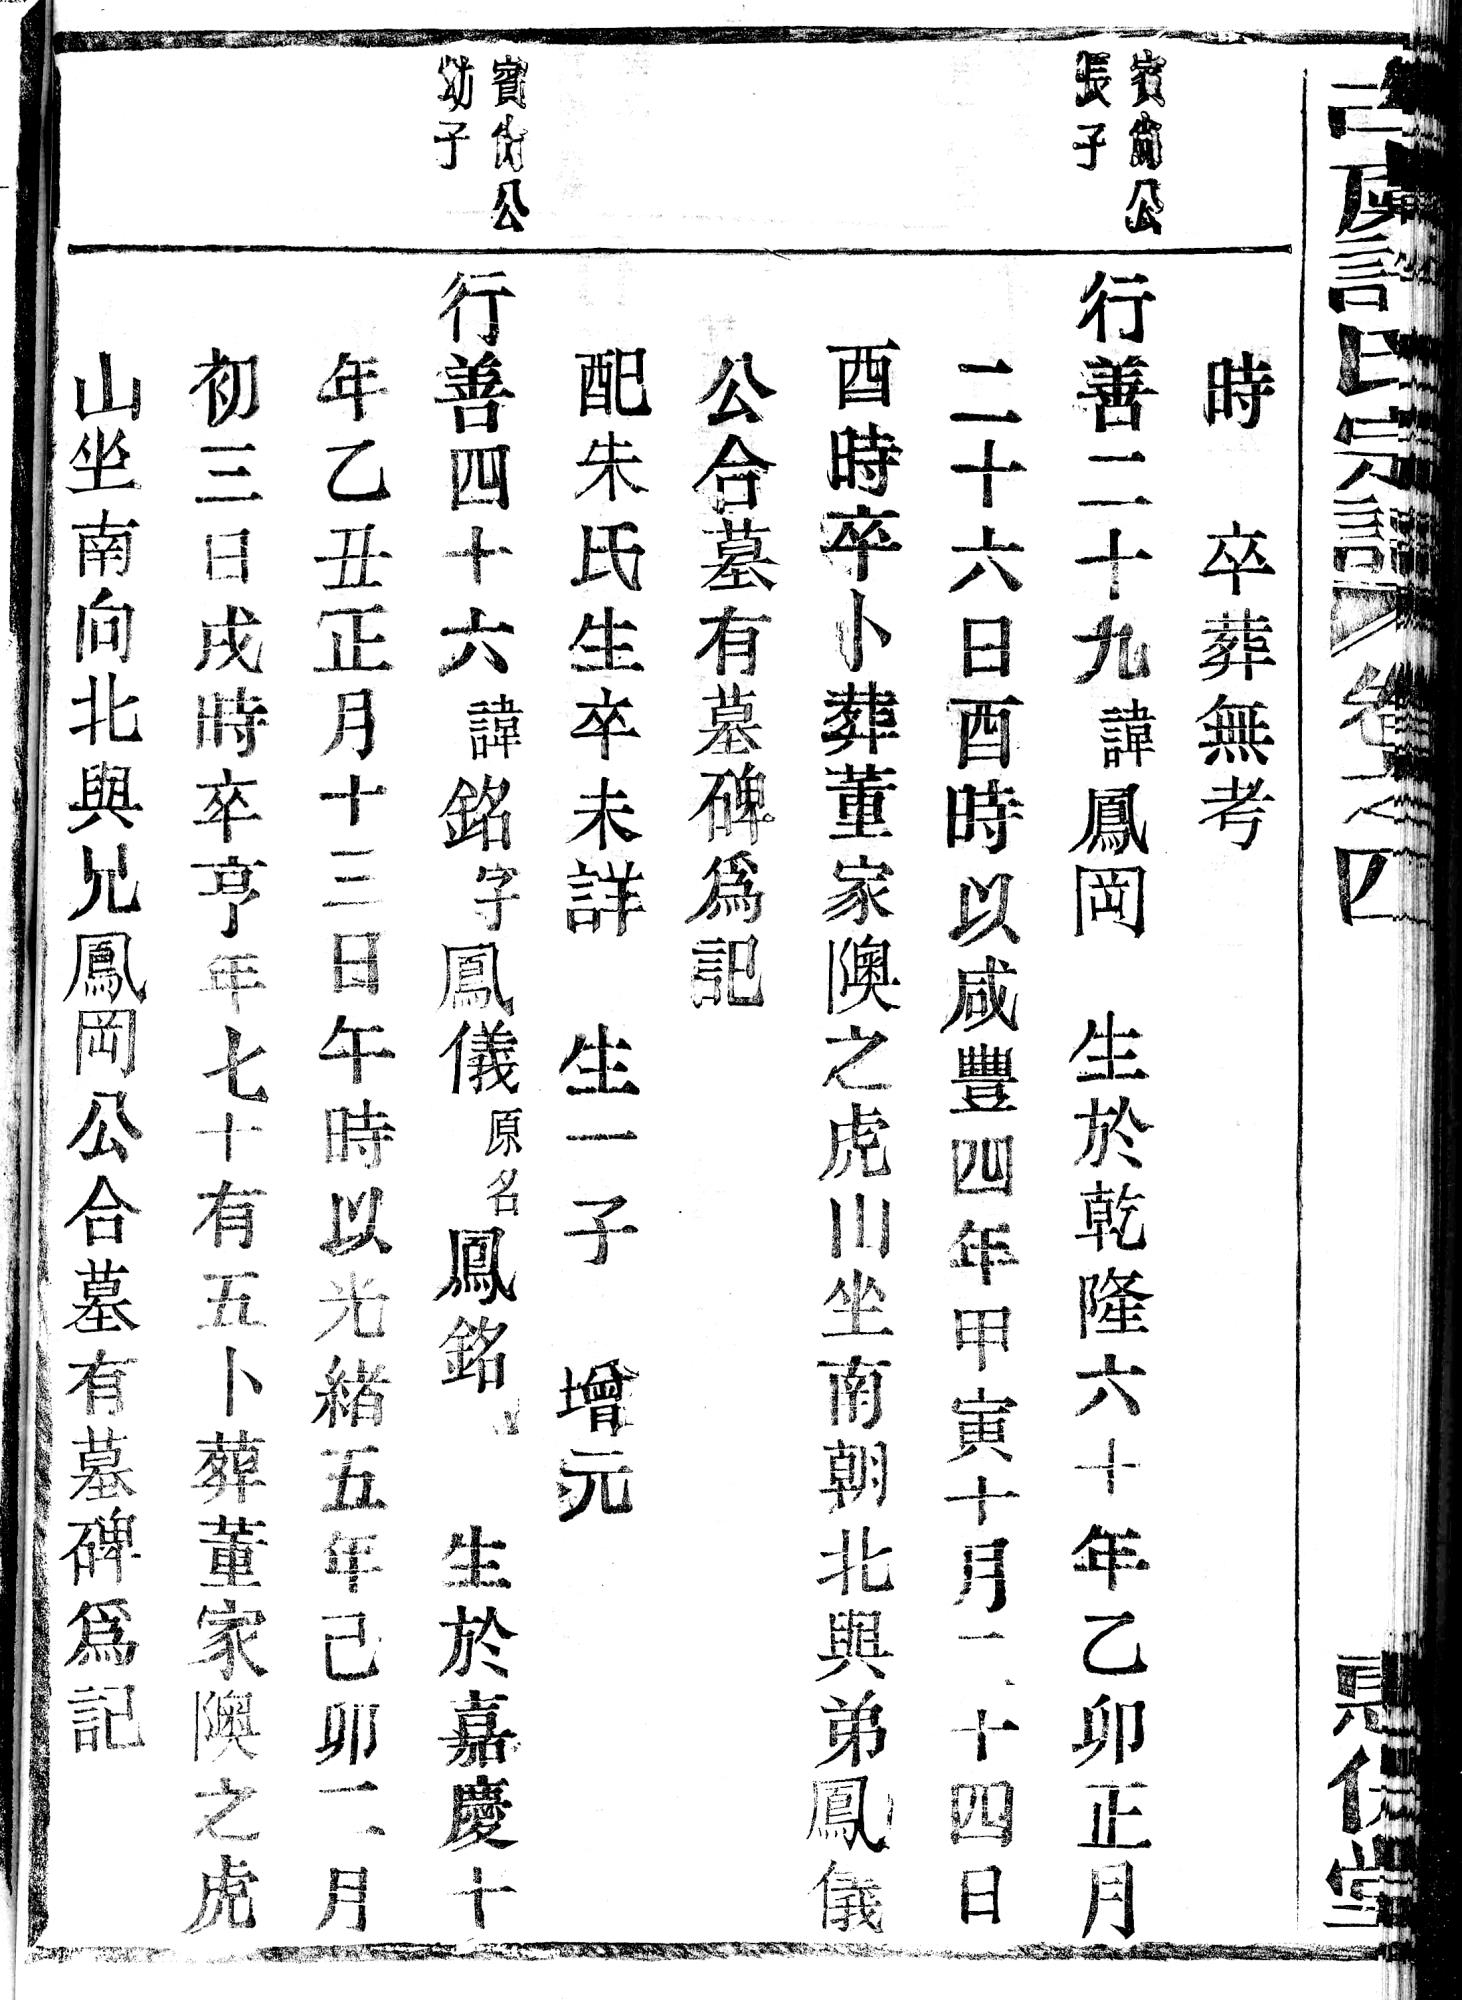 許氏宗譜 卷之四
時 卒葬無考
賓尙公
長子
行善二十九諱鳳岡 生於乾隆六十年乙卯正月
二十六日酉時以咸豐四年甲寅十月二十四日
酉時卒卜葬董家隩之虎山坐南朝北與弟鳳儀
公合墓有墓碑爲記
配朱氏生卒未詳 生一子 增元
賓尙公
幼子
行善四十六諱銘字鳳儀原名鳳銘 生於嘉慶十
年乙丑正月十三日午時以光緒五年己卯二月
初三日戌時卒亨年七十有五卜葬董家隩之虎
山坐南向北與兄鳳岡公合墓有墓碑爲記